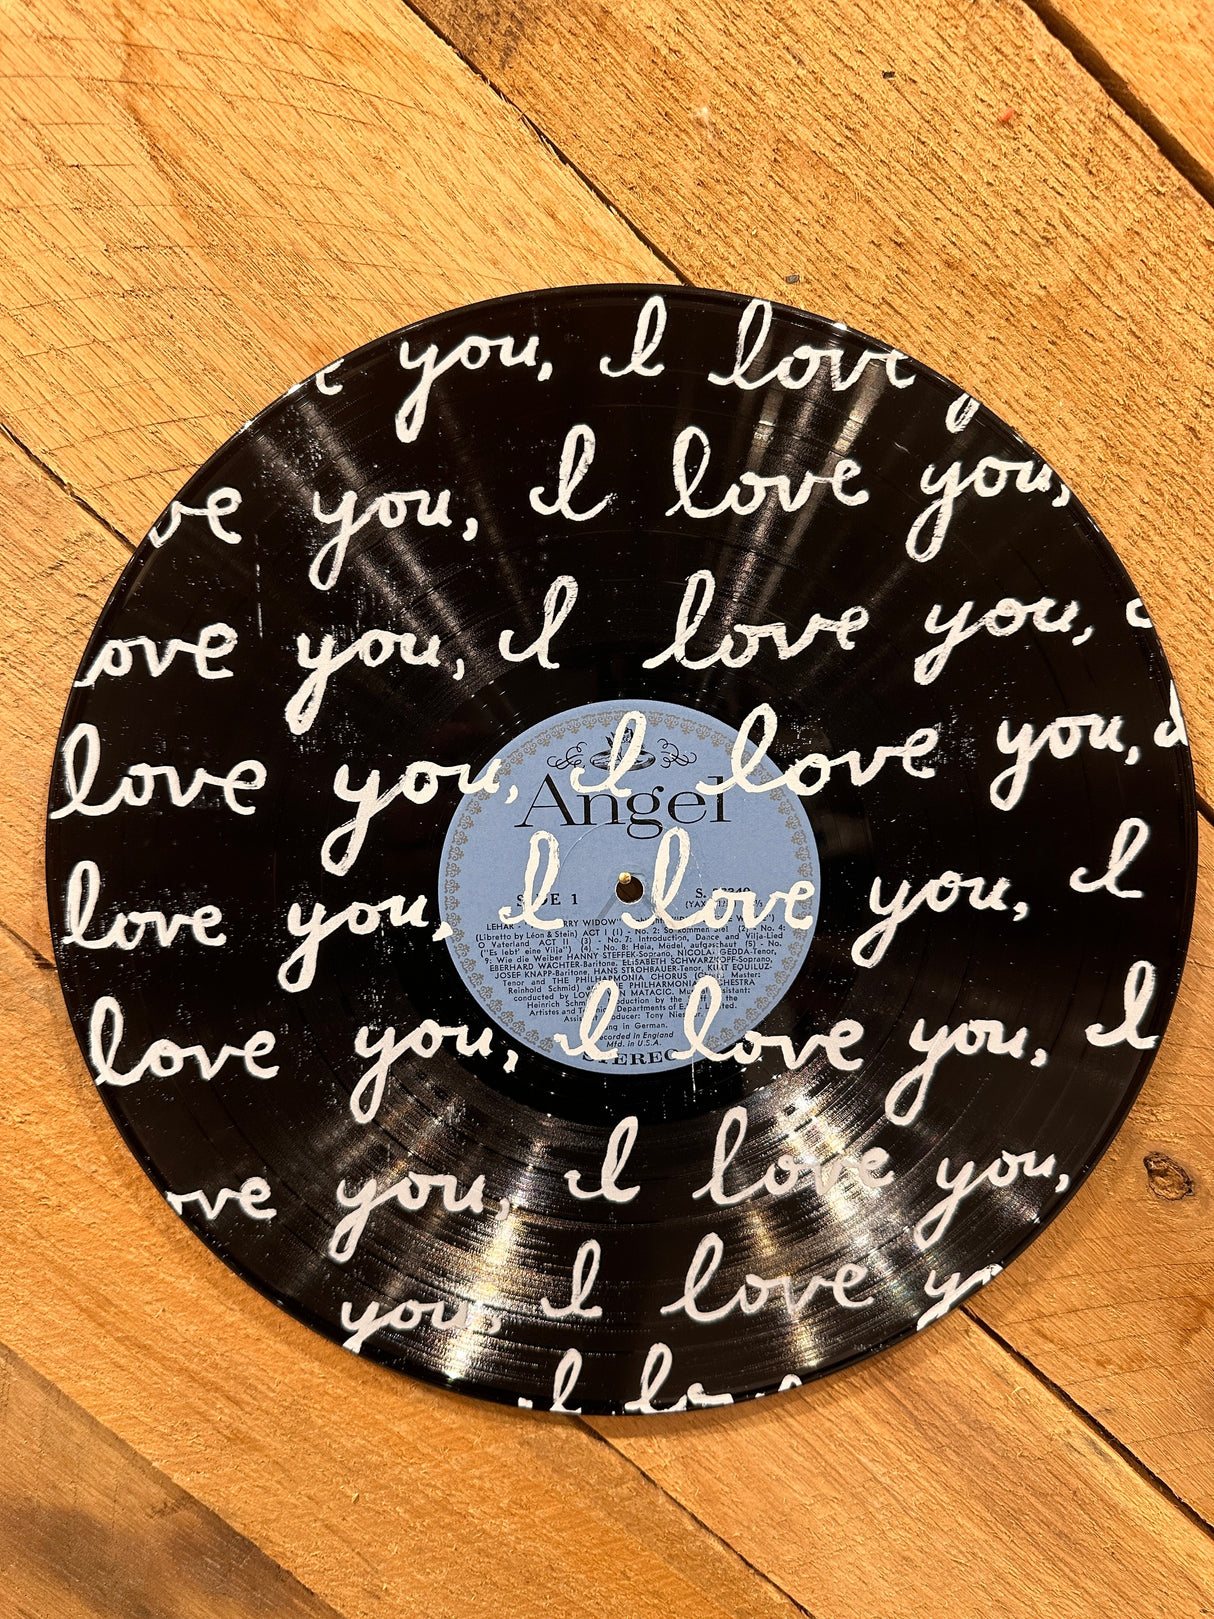 you, I love
ve you, I love you,
love you, I love you,
love you, I love you,
Angel
love you, I love you, I
SIDE 1
S.
LEHAR - RRY WIDOW"
(Libretto by Léon & Stein) ACT I (1) - No. 2: So kommen Sie! (2) - No. 4:
O Vaterland ACT II (3) - No. 7: Introduction, Dance and Vilja-Lied
("Es lebt' eine Vilja") (4) - No. 8: Heia, Mädel, aufgeschaut (5) - No.
9: Wie die Weiber HANNY STEFFEK-Soprano, NICOLAI GEDDA-Tenor,
EBERHARD WÄCHTER-Baritone, ELISABETH SCHWARZKOPF-Soprano,
JOSEF KNAPP-Baritone, HANS STROHBAUER-Tenor, KURT EQUILUZ-
Tenor and THE PHILHARMONIA CHORUS Master:
Reinhold Schmid) THE PHILHARMONIA ORCHESTRA
conducted by MATACIC, Assistant:
Heinrich production by the the
Artistes and Departments of Limited.
Producer: Tony
in German.
Recorded in England
Mfd. in U.S.A.
STEREO
love you, I love you, I
ve you, I love you,
you, I love
I